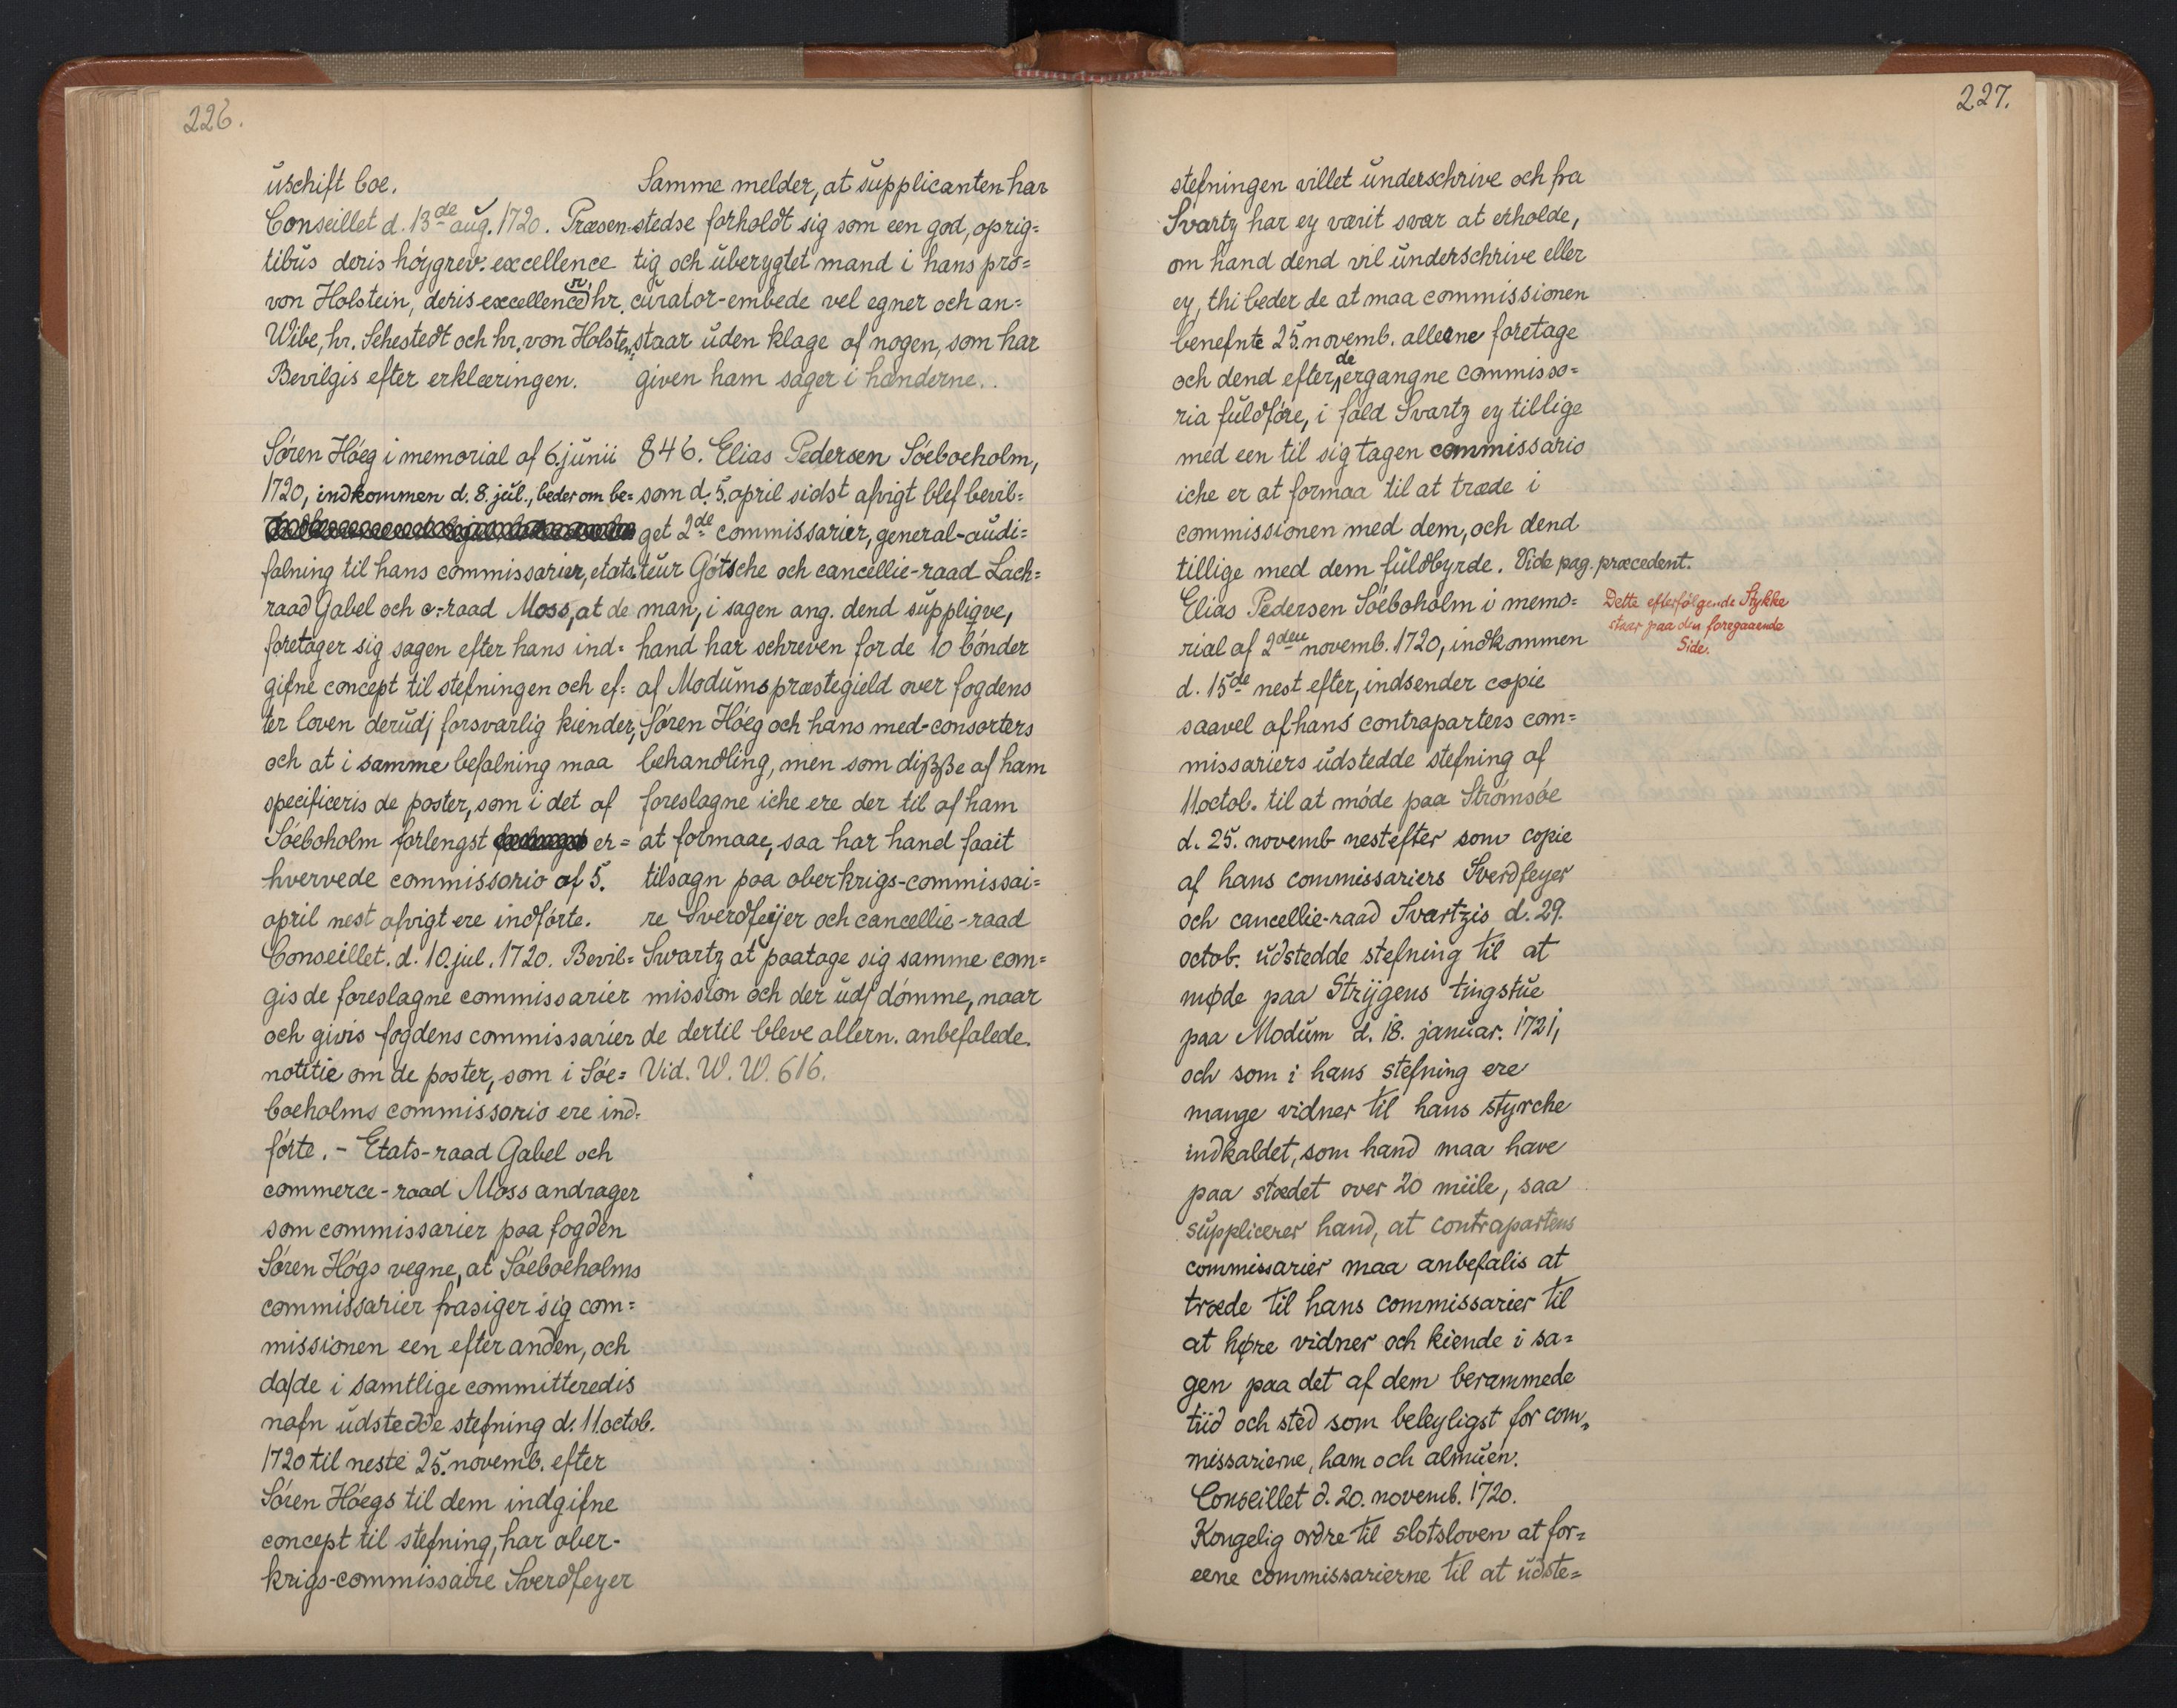 226.
uschift boe.
Conseillet d. 13de aug. 1720. Præsen-
tibus deris höygrev. excellence
von Holstein, deris excellencer hr.
Wibe, hr. Sehestedt och hr. von Holsten,
Bevilgis efter erklæringen.
Sören Höeg i memorial af 6. junii
1720, indkommen d. 8. jul., beder om be=
falning til hans commissarier, etats
raad Gabel och c:raad Moss, at de
foretager sig sagen efter hans ind=
gifne concept til stefningen och ef=
ter loven derudj forsvarlig kiender,
och at i samme befalning maa
specificeris de poster, som i det af
Söeboholm forlengst er=
hvervede commissorio af 5.
april nest afvigt ere indförte.
Conseillet. d. 10. jul. 1720. Bevil=
gis de foreslagne commissarier
och givis fogdens commissarier
notitie om de poster, som i Söe=
boeholms commissorio ere ind-
förte. - Etats-raad Gabel och
commerce-raad Moss andrager
som commissarier paa fogden
Sören Högs vegne, at Söeboeholms
commissarier frasiger sig com=
missionen een efter anden, och
da/de i samtlige committeredis
nafn udstedde stefning d. 11. octob.
1720 til neste 25. novemb. efter
Sören Höegs til dem indgifne
concept til stefning, har ober-
krigs-commissaire Sverdfeyer
Samme melder, at supplicanten har
stedse forholdt sig som een god, oprig=
tig och uberygtet mand i hans pro=
curator-embede vel egner och an=
staar uden klage af nogen, som har
given ham sager i hænderne.
846. Elias Pedersen Söeboeholm,
som d. 5. april sidst afvigt blef bevil=
get 2de commissarier, general-audi=
teur Götsche och cancellie-raad Lach=
man, i sagen ang. dend suppligve,
hand har schreven for de 10 bönder
af Modums præstegield over fogdens
Sören Höeg och hans med-consorters
behandling, men som dißße af ham
foreslagne iche ere der til af ham
at formaae, saa har hand faait
tilsagn paa oberkrigs-commissai=
re Sverdfeijer och cancellie-raad
Swartz at paatage sig samme com=
mission och der udj dömme, naar
de dertil bleve allern. anbefalede.
Vid. W. W. 616.
227.
stefningen villet underschrive och fra
Svartz har ey værit svar at erholde,
om hand dend vil underschrive eller
ey, thi beder de at maa commissionen
benefnte 25. novemb. alleene foretage
och dend efter de ergangne commisso=
ria fuldföre, i fald Svartz ey tillige
med een til sig tagen commissario
iche er at formaa til at træde i
commissionen med dem, och dend
tillige med dem fuldbyrde. Vide pag. præcedent.
Elias Pedersen Söeboholm i memo=
rial af 2den novemb. 1720, indkommen
d. 15de nest efter, indsender copie
saavel af hans contraparters com=
missariers udstedde stefning af
11. octob. til at möde paa Strömsöe
d. 25. novemb nestefter som copie
af hans commissariers Sverdfeyer
och cancellie-raad Svartzis d. 29.
octob. udstedde stefning til at
møde paa Strijgens tingstue
paa Modum d. 18. januar. 1721,
och som i hans stefning ere
mange vidner til hans styrche
indkaldet, som hand maa have
paa stædet over 20 miile, saa
supplicerer hand, at contrapartens
commissarier maa anbefalis at
træde til hans commissarier til
at høre vidner och kiende i sa=
gen paa det af dem berammede
tiid och sted som beleyligst for com=
missarierne, ham och almuen.
Conseillet d. 20. novemb. 1720.
Kongelig ordre til slotsloven at for=
eene commissarierne til at udste=
Dette efterfölgende Stykke
staar paa den foregaaende
Side.